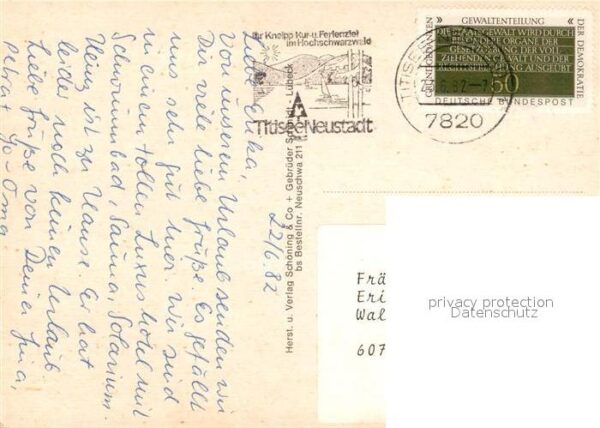 22/6.82
Liebe Erika,
von unserem Urlaub senden wir
Dir viele liebe Grüße. Es gefällt
uns sehr gut hier. Wir sind
in einem tollen Luxushotel mit
Schwimmbad, Sauna, Solarium.
Heinz ist zu Hause. Er hat
leider noch keinen Urlaub
Liebe Grüße von Deiner
Petra + Jo - Oma
Herst. u. Verlag Schöning & Co + Gebrüder Schmidt · Lübeck
bs Bestellnr. Neuschwa 211
Ihr Kneipp Kur-u. Ferienziel
im Hochschwarzwald
Titisee Neustadt
TITISEE
.82-7
7820
GRUNDGEDANKEN
GEWALTENTEILUNG
DER DEMOKRATIE
DIE STAATSGEWALT WIRD DURCH
BESONDERE ORGANE DER
GESETZGEBUNG, DER VOLL
ZIEHENDEN GEWALT UND DER
RECHTSPRECHUNG AUSGEÜBT
50
DEUTSCHE BUNDESPOST
Frä
Eri
Wal
607
privacy protection
Datenschutz